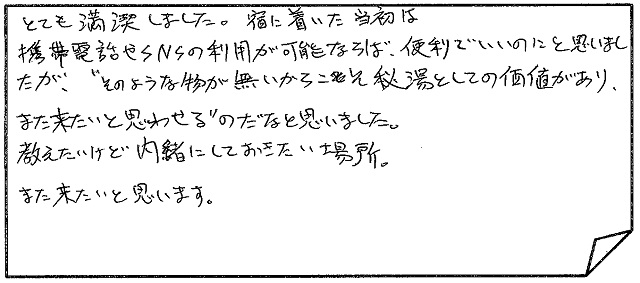 とても満喫しました。宿に着いた当初は
携帯電話やSNSの利用が可能ならば、便利でいいのにと思いまし
たが、"そのような物が無いからこそ秘湯としての価値があり、
また来たいと思わせる"のだなと思いました。
教えたいけど内緒にしておきたい場所。
また来たいと思います。